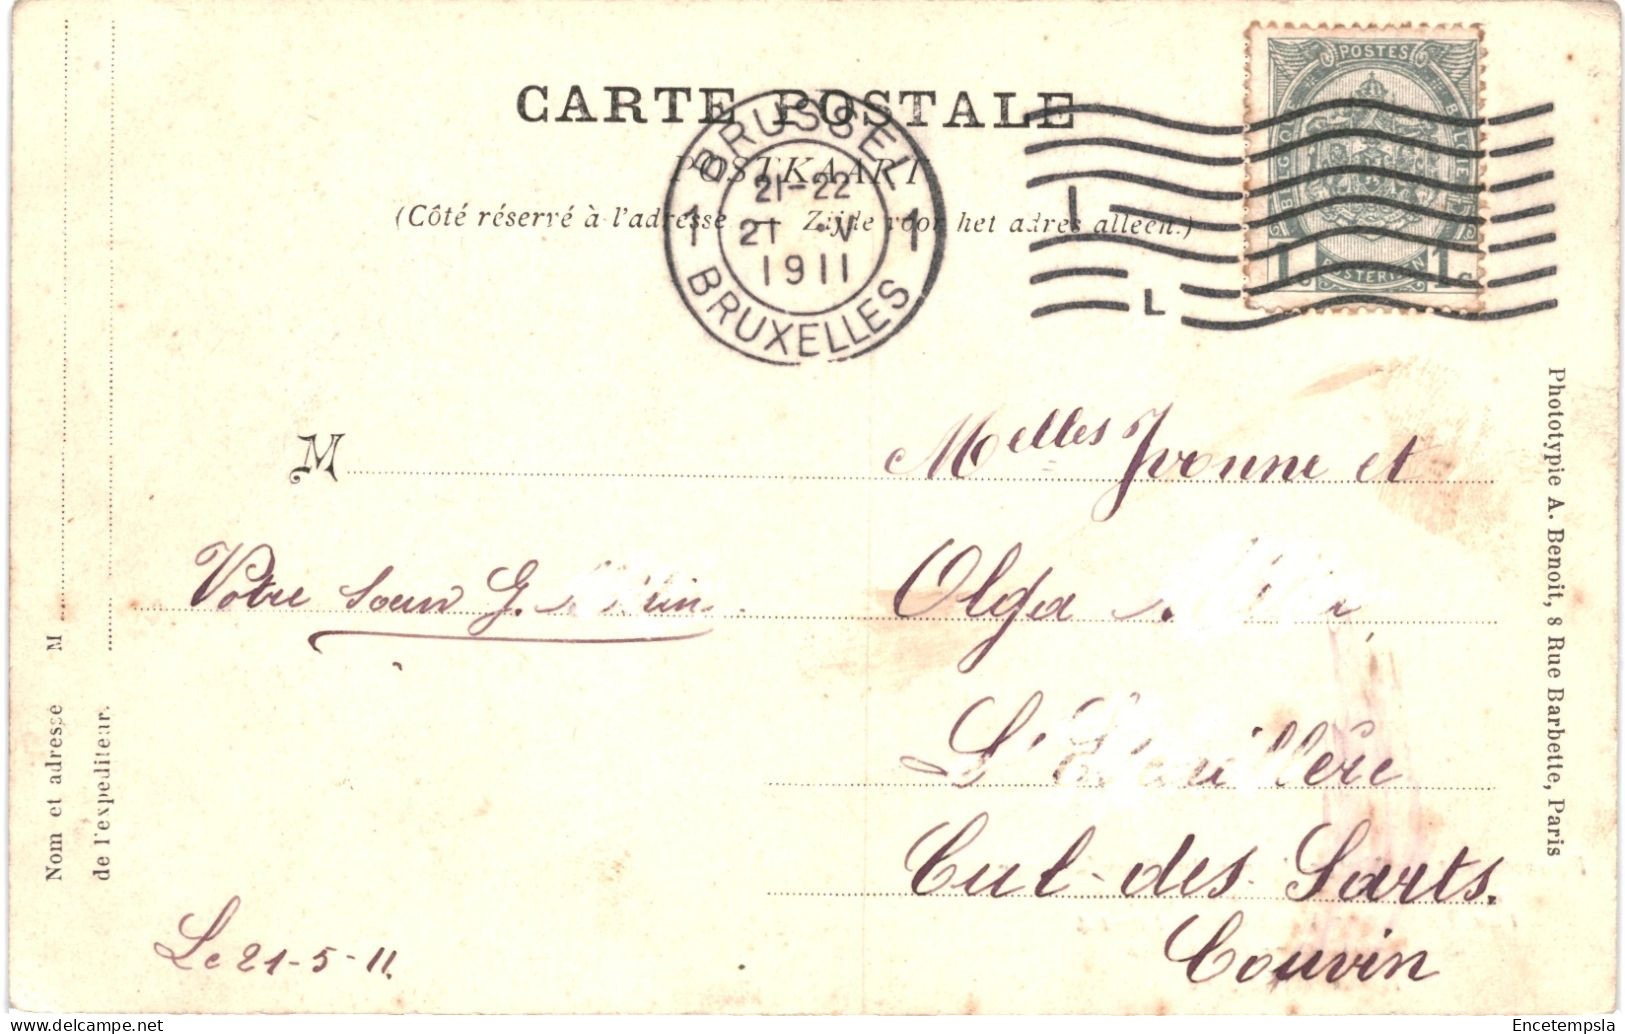 CARTE POSTALE
POSTKAART
(Côté réservé à l'adresse — Zijde voor het adres alleen.)
BRUSSEL
21-22
1 21 V 1
1911
BRUXELLES
L
L
POSTES
BELGIQUE
BELGIË
1c POSTERIJEN 1c
M
Melles Yvonne et
Votre soeur G.
Olga
L'
Cul-des-Sarts.
Couvin
Le 21-5-11.
Nom et adresse M
de l'expéditeur.
Phototypie A. Benoit, 8 Rue Barbette, Paris
Encetempsla